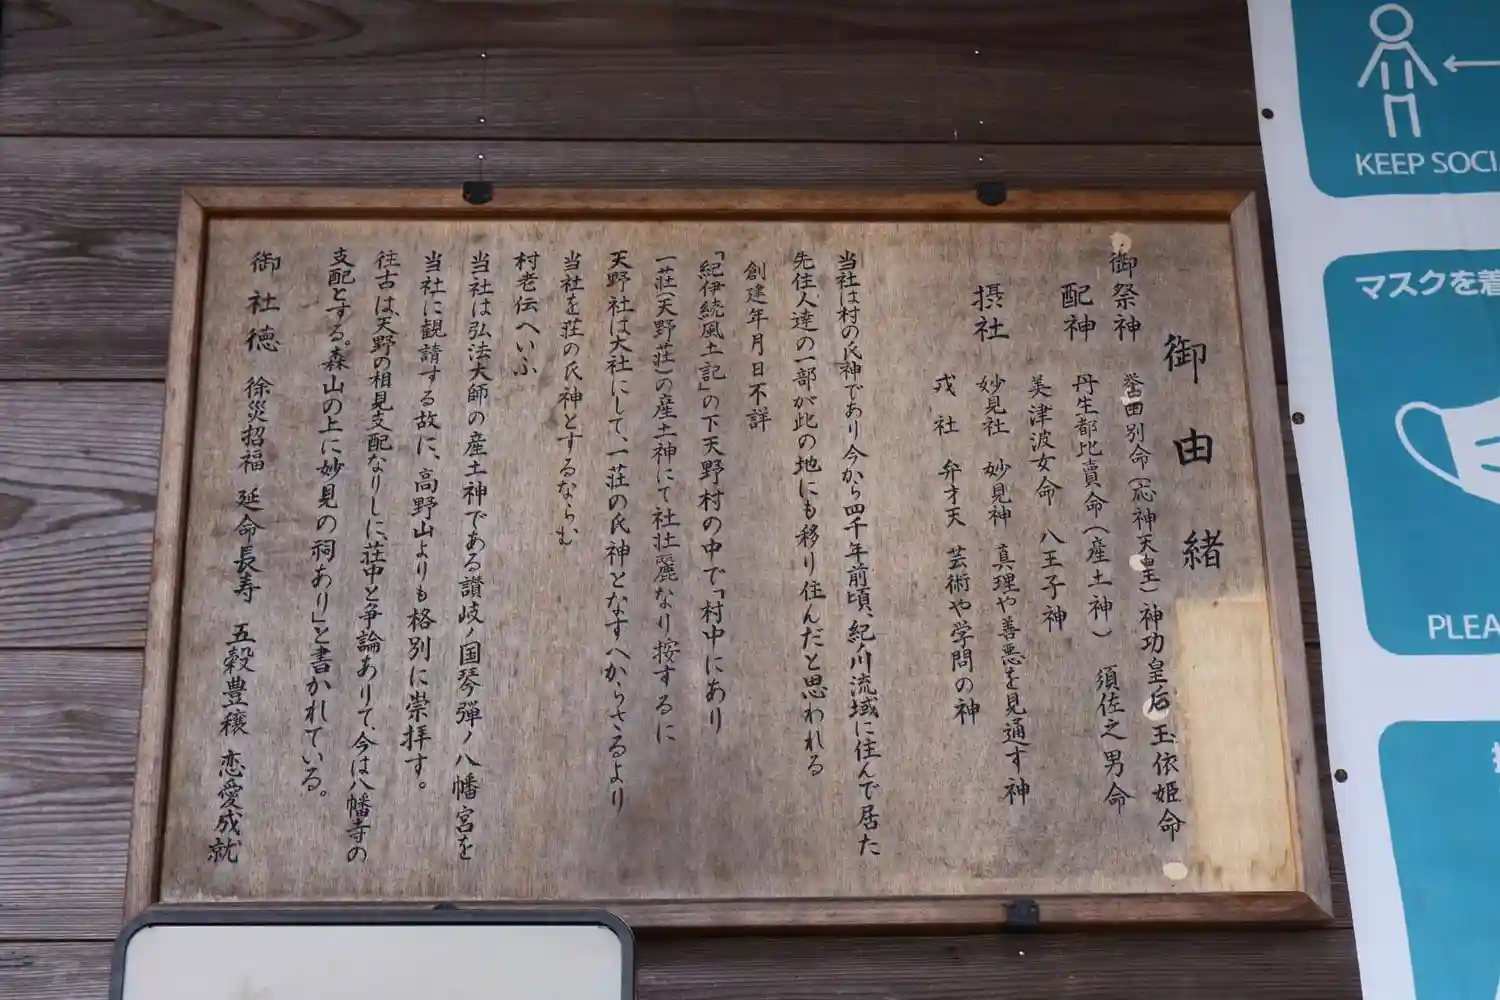 御由緒
御祭神 誉田別命(応神天皇)神功皇后 玉依姫命
配神 丹生都比賣命(産土神) 須佐之男命
美津波女命 八王子神
摂社 妙見社 妙見神 真理や善悪を見通す神
戎社 弁才天 芸術や学問の神
当社は村の氏神であり今から四千年前頃、紀ノ川流域に住んで居た
先住人達の一部が此の地にも移り住んだと思われる
創建年月日不詳
「紀伊続風土記」の下天野村の中で「村中にあり
一荘(天野荘)の産土神にて社壮麗なり按するに
天野社は大社にして、一荘の氏神となすへからさるより
当社を荘の氏神とするならむ
村老伝へいふ
当社は弘法大師の産土神である讃岐ノ国琴弾ノ八幡宮を
当社に観請する故に、高野山よりも格別に崇拝す。
往古は、天野の相見支配なりしに、荘中と争論ありて、今は八幡寺の
支配とする。森山の上に妙見の祠あり」と書かれている。
御社徳 徐災招福 延命長寿 五穀豊穣 恋愛成就
KEEP SOCI
マスクを着
PLEA